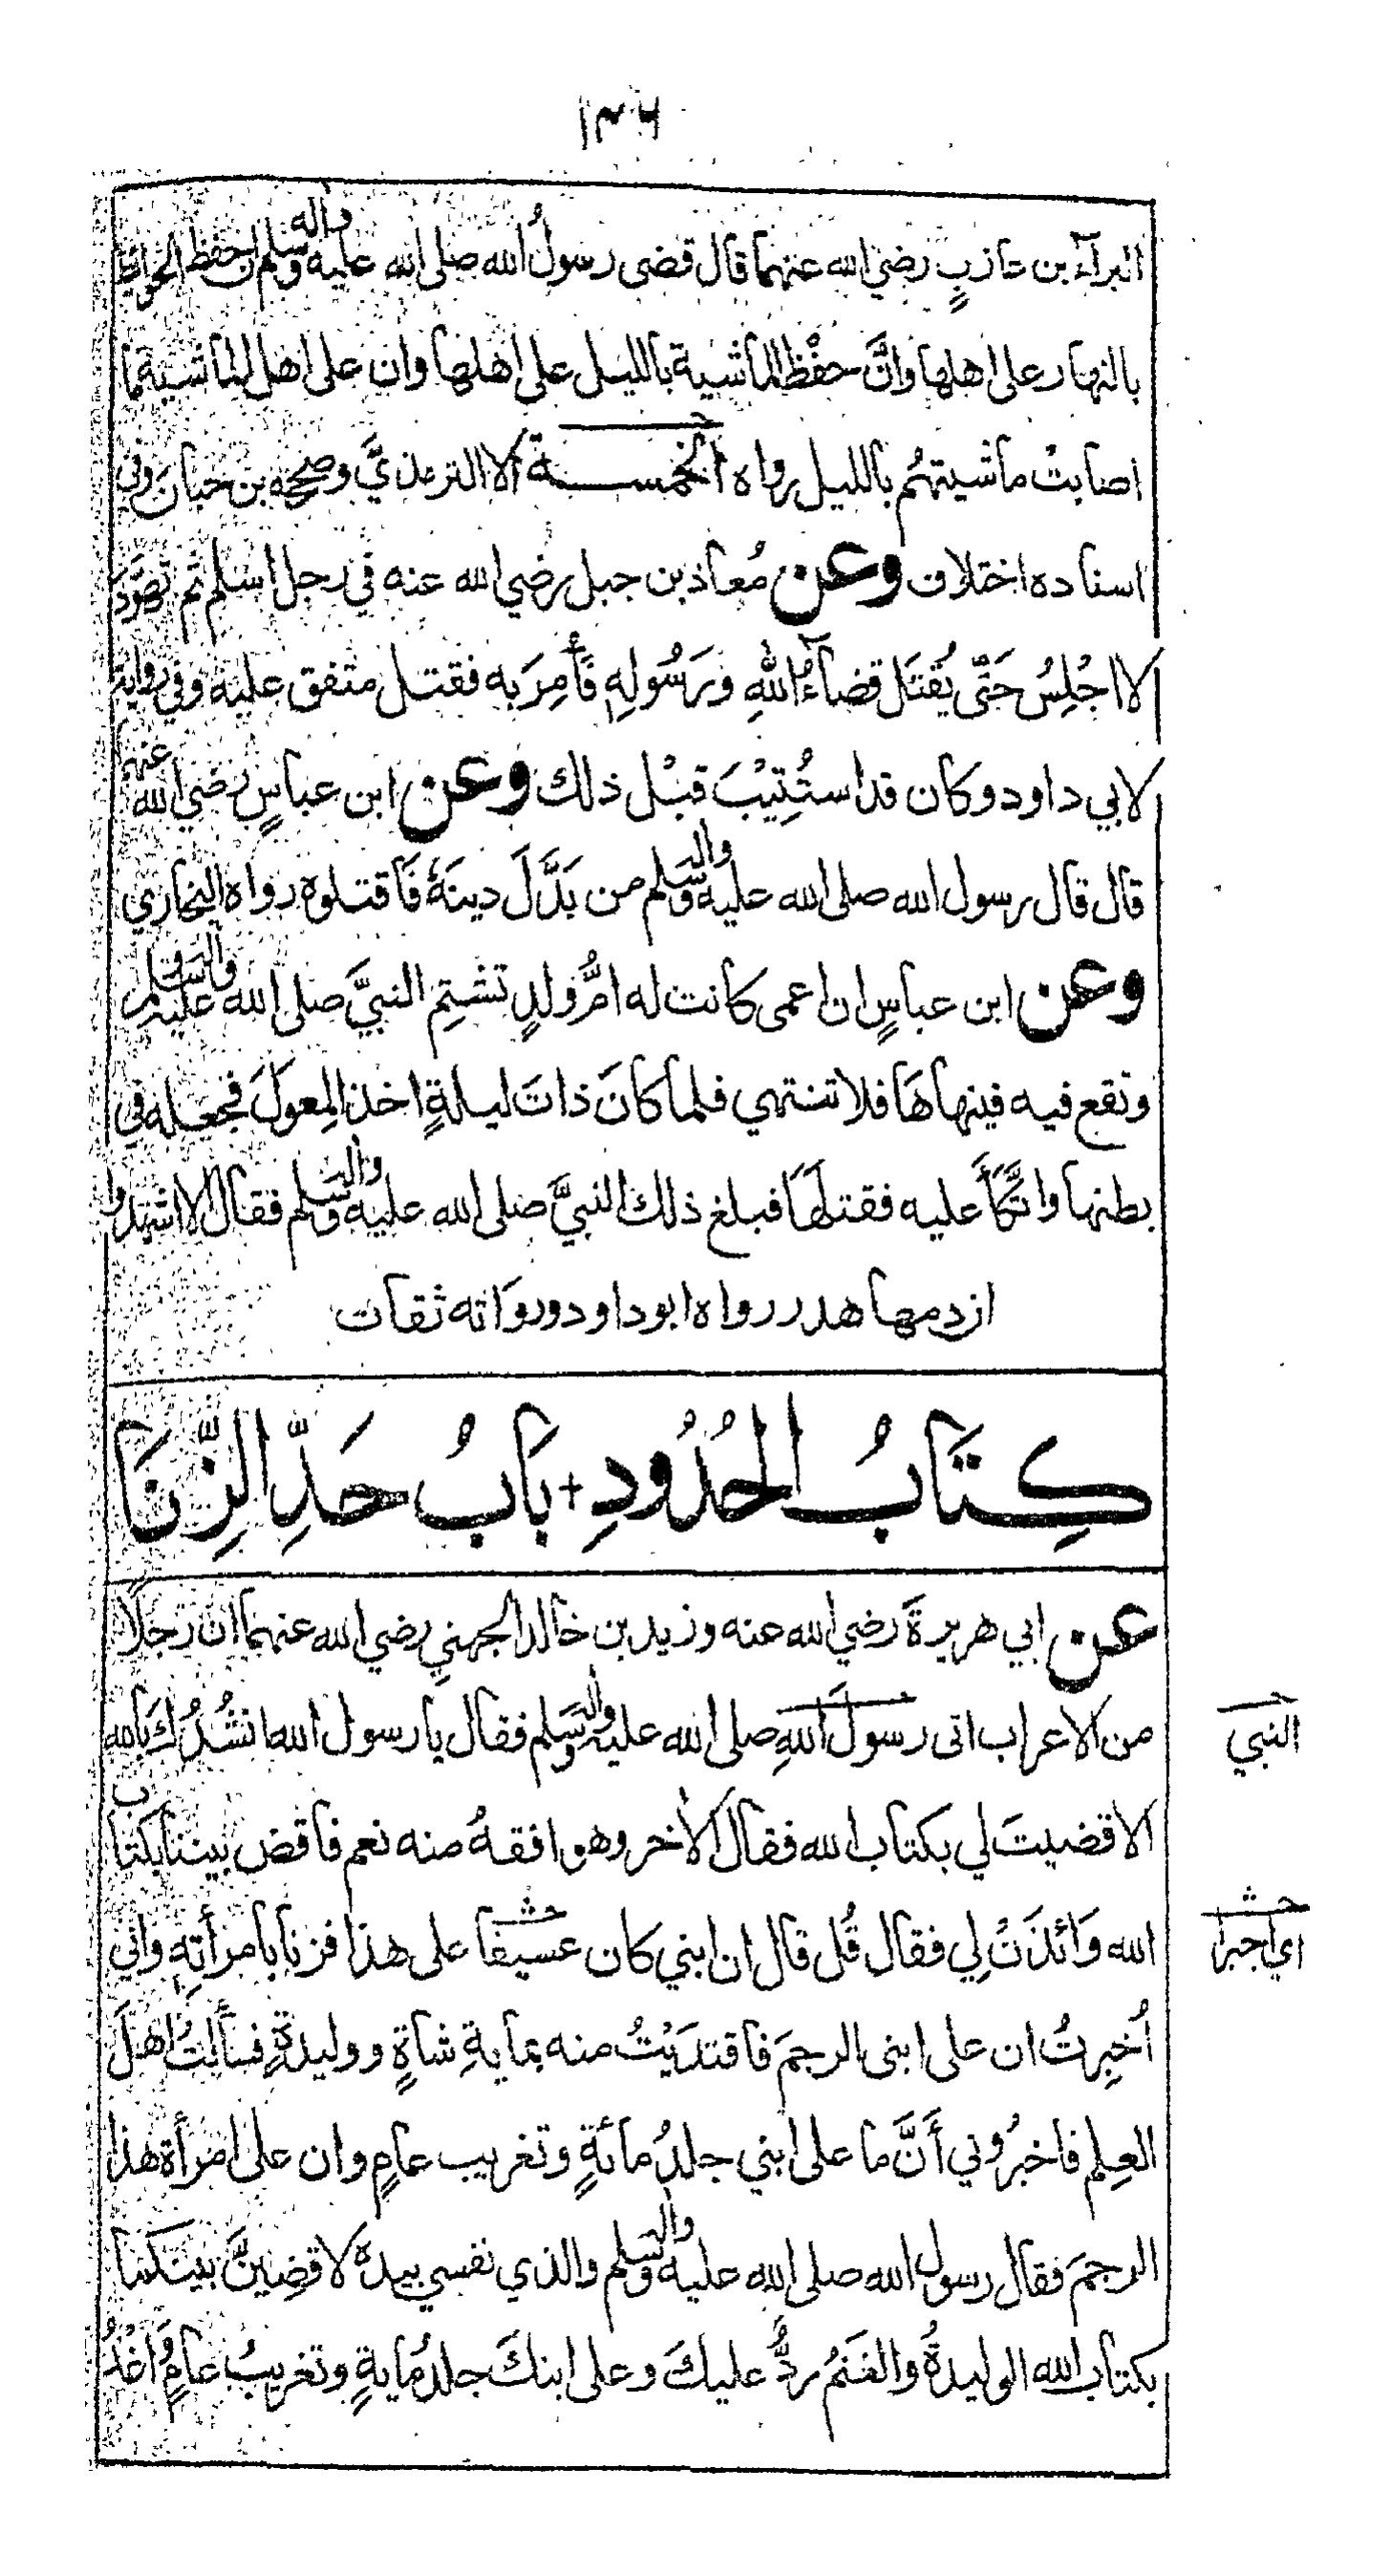 ١٣٦
البرآء بن عازبٍ رضي الله عنهما قال قضى رسولُ الله صلى الله عليه واله وسلم ان حفظ الحوائط
بالنهار على اهلها وانَّ حفْظ الماشية بالليل على اهلها وان على اهل الماشية ما
اصابتْ ماشيتهُم بالليل رواه الخمسة الا الترمذيَّ وصححه بن حبانَ وفي
اسناده اختلاف وعن مُعاذ بن جبل رضي الله عنه في رجل اسلم ثم تهوَّدَ
لا اجْلِسُ حَتّى يُقتَل قضآءُ اللهِ وَرَسُولِهِ فَأُمِرَ به فقتل متفق عليه وفي رواية
لابي داود وكان قد استُتِيْبَ قبْل ذلك وعن ابن عباسٍ رضي الله عنهما
قال قال رسول الله صلى الله عليه واله وسلم من بَدَّلَ دينَهُ فَاقتلوه رواه البخاري
وعن ابن عباسٍ ان اعمى كانت له امُّ ولدٍ تشتِم النبيَّ صلى الله عليه واله وسلم
وتقع فيه فينهاهَا فلا تنتهي فلما كانَ ذاتَ ليلةٍ اخذ المِعولَ فجعله في
بطنها واتَّكَأَ عليه فقتلهَا فبلغ ذلك النبيَّ صلى الله عليه واله وسلم فقال الا اشهدوا
ان دمها هدر رواه ابو داود ورواته ثقات
كِتَابُ الحُدُودِ + بَابُ حَدِّ الزِّنَا
عن ابي هريرةَ رضي الله عنه وزيد بن خالد الجهنيِ رضي الله عنهما ان رجلًا
من الاعراب اتى رسولَ اللهِ صلى الله عليه واله وسلم فقال يا رسول الله انشُدُكَ بالله
النبي
الا قضيتَ لي بكتاب الله فقال الاٰخر وهو افقهُ منه نعم فاقض بيننا بكتاب
الله وَائذَنْ لِي فقال قُل قال ان ابني كان عسيفًا على هذا فزنا بامرأتِهِ واني
اي اجيرا
اُخبِرتُ ان على ابنى الرجمَ فاقتديْتُ منه بمايةِ شاةٍ ووليدةٍ فسألتُ اهلَ
العِلم فاخبرُوني أَنَّ ما على ابني جلدُ مائةٍ وتغريب عامٍ وان على امرأة هذا
الرجمَ فقال رسول الله صلى الله عليه واله وسلم والذي نفسي بيده لاقضِينَّ بينكما
بكتاب الله الوليدةُ والغَنَمُ ردٌّ عليكَ وعلى ابنكَ جلدُ مايةٍ وتغريبُ عامٍ وَاغْدُ